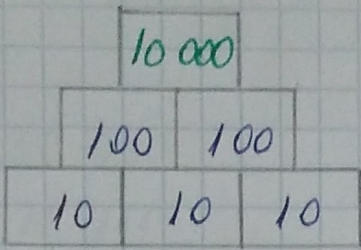 10 000
100 100
10 10 10